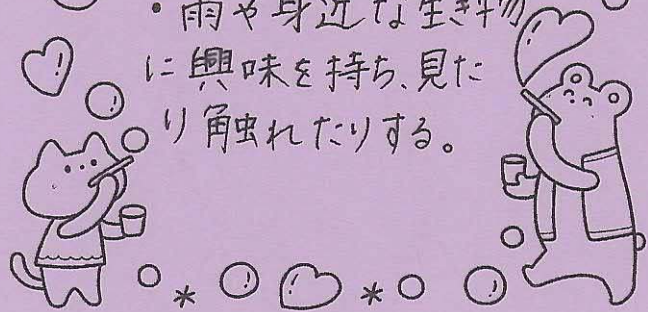 ・雨や身近な生き物
に興味を持ち、見た
り触れたりする。